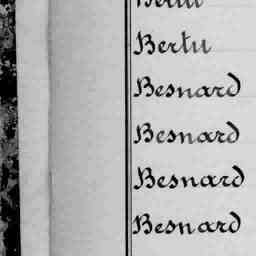 Bertu
Besnard
Besnard
Besnard
Besnard